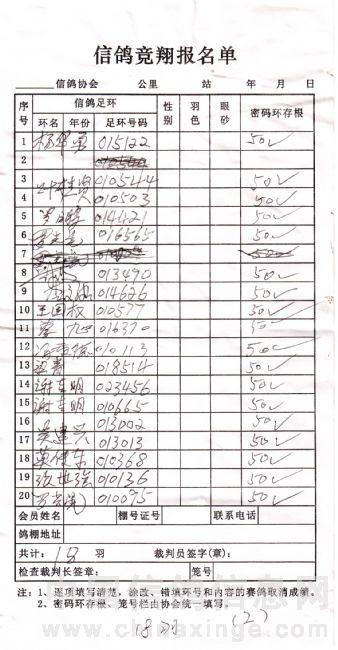 信鸽竞翔报名单
信鸽协会 公里 站 年 月 日
序号 信鸽足环 性别 羽色 眼砂 密码环存根
环名 年份 足环号码
1 015122 50✓
2
3 叶桂贤 010544 50✓
4 010503 50✓
5 014421 50✓
6 016565 50✓
7
8 013490 50✓
9 014626 50✓
10 王国权 010577 50✓
11 蔡旭 016370 50✓
12 010113 50✓
13 018514 50✓
14 谢东明 023456 50✓
15 谢东明 010665 50✓
16 013002 50✓
17 吴建兴 013013 50✓
18 010368 50✓
19 010136 50✓
20 010095 50✓
会员姓名 棚号证号 联系电话
鸽棚地址
共计：18 羽 裁判员签字(章)：
检查裁判长签章： 笼号
注：1、逐项填写清楚，涂改、错填环号和内容的赛鸽取消成绩。
2、密码环存根、笼号栏由协会统一填写。
中国信鸽信息网
www.chinaxinge.com
18羽 (2)